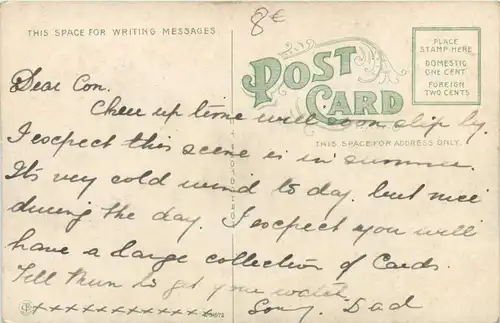 THIS SPACE FOR WRITING MESSAGES
8€
POST CARD
PLACE
STAMP HERE
DOMESTIC
ONE CENT
FOREIGN
TWO CENTS
THIS SPACE FOR ADDRESS ONLY.
Dear Con.
Cheer up time will soon slip by.
I expect this scene is in summer.
Its very cold wind to day. but nice
during the day. I expect you will
have a large collection of Cards.
Tell them to get your water
Sony. Dad
xxxxxxxxxxxx